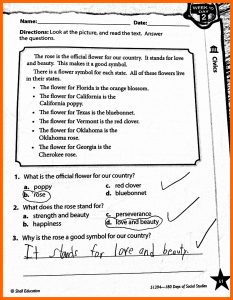 WEEK 2
DAY
2
Name: Date:
Directions: Look at the picture, and read the text. Answer
the questions.
Civics
The rose is the official flower for our country. It stands for love
and beauty. This makes it a good symbol.
There is a flower symbol for each state. All of these flowers live
in their states.
• The flower for Florida is the orange blossom.
• The flower for California is the
California poppy.
• The flower for Texas is the bluebonnet.
• The flower for Vermont is the red clover.
• The flower for Oklahoma is the
Oklahoma rose.
• The flower for Georgia is the
Cherokee rose.
1. What is the official flower for our country?
a. poppy c. red clover
b. rose d. bluebonnet
2. What does the rose stand for?
a. strength and beauty c. perseverance
b. happiness d. love and beauty
3. Why is the rose a good symbol for our country?
It stands for love and beauty.
© Shell Education 51394—180 Days of Social Studies